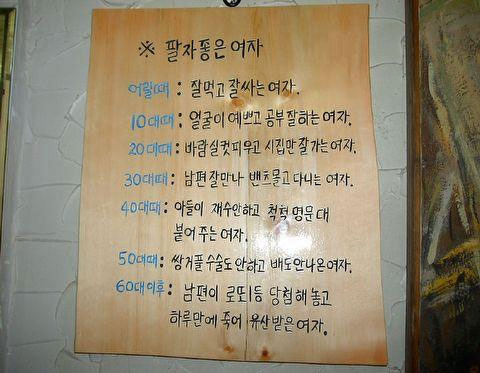 ※ 팔자좋은여자
어릴때 : 잘먹고잘싸는여자.
10대때 : 얼굴이 예쁘고 공부잘하는여자.
20대때 : 바람실컷피우고 시집만잘가는여자.
30대때 : 남편잘만나 밴츠몰고다니는여자.
40대때 : 아들이 재수안하고 척척명문대
붙어주는여자.
50대때 : 쌍거풀수술도안하고 배도안나온여자.
60대이후 : 남편이 로또1등 당첨해놓고
하루만에죽어 유산받은여자.